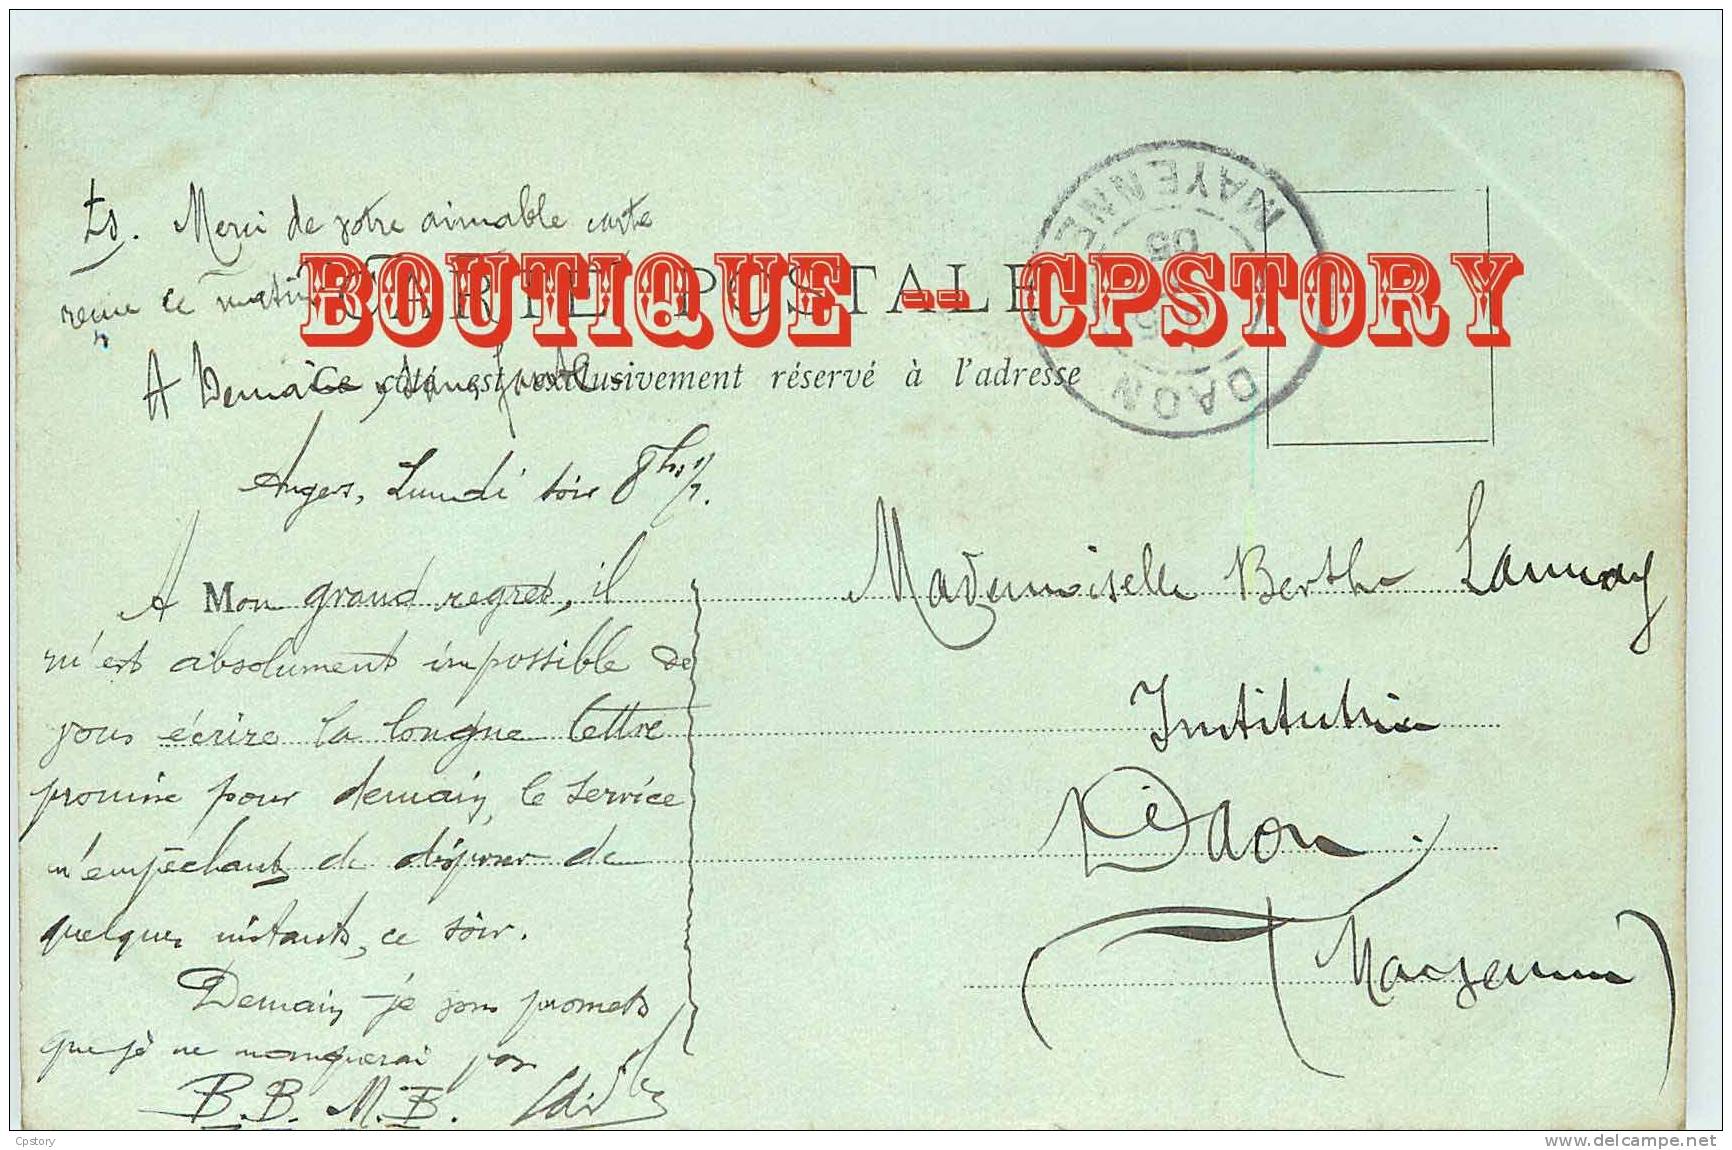 Ps. Merci de votre aimable carte
reçue ce matin
BOUTIQUE -- CPSTORY
CARTE POSTALE
A Demain, sans faute.
Ce côté est exclusivement réservé à l'adresse
MAYENNE
05
DAON
Angers, Lundi soir 8h 1/2.
A Mon grand regret, il
m'est absolument impossible de
vous écrire la longue lettre
promise pour demain, le service
m'empêchant de disposer de
quelques instants, ce soir.
Demain je vous promets
que je ne manquerai pas
B.B. M.B.
Mademoiselle Berthe Launay
Institutrice
à Daon
(Mayenne)
Cpstory
www.delcampe.net